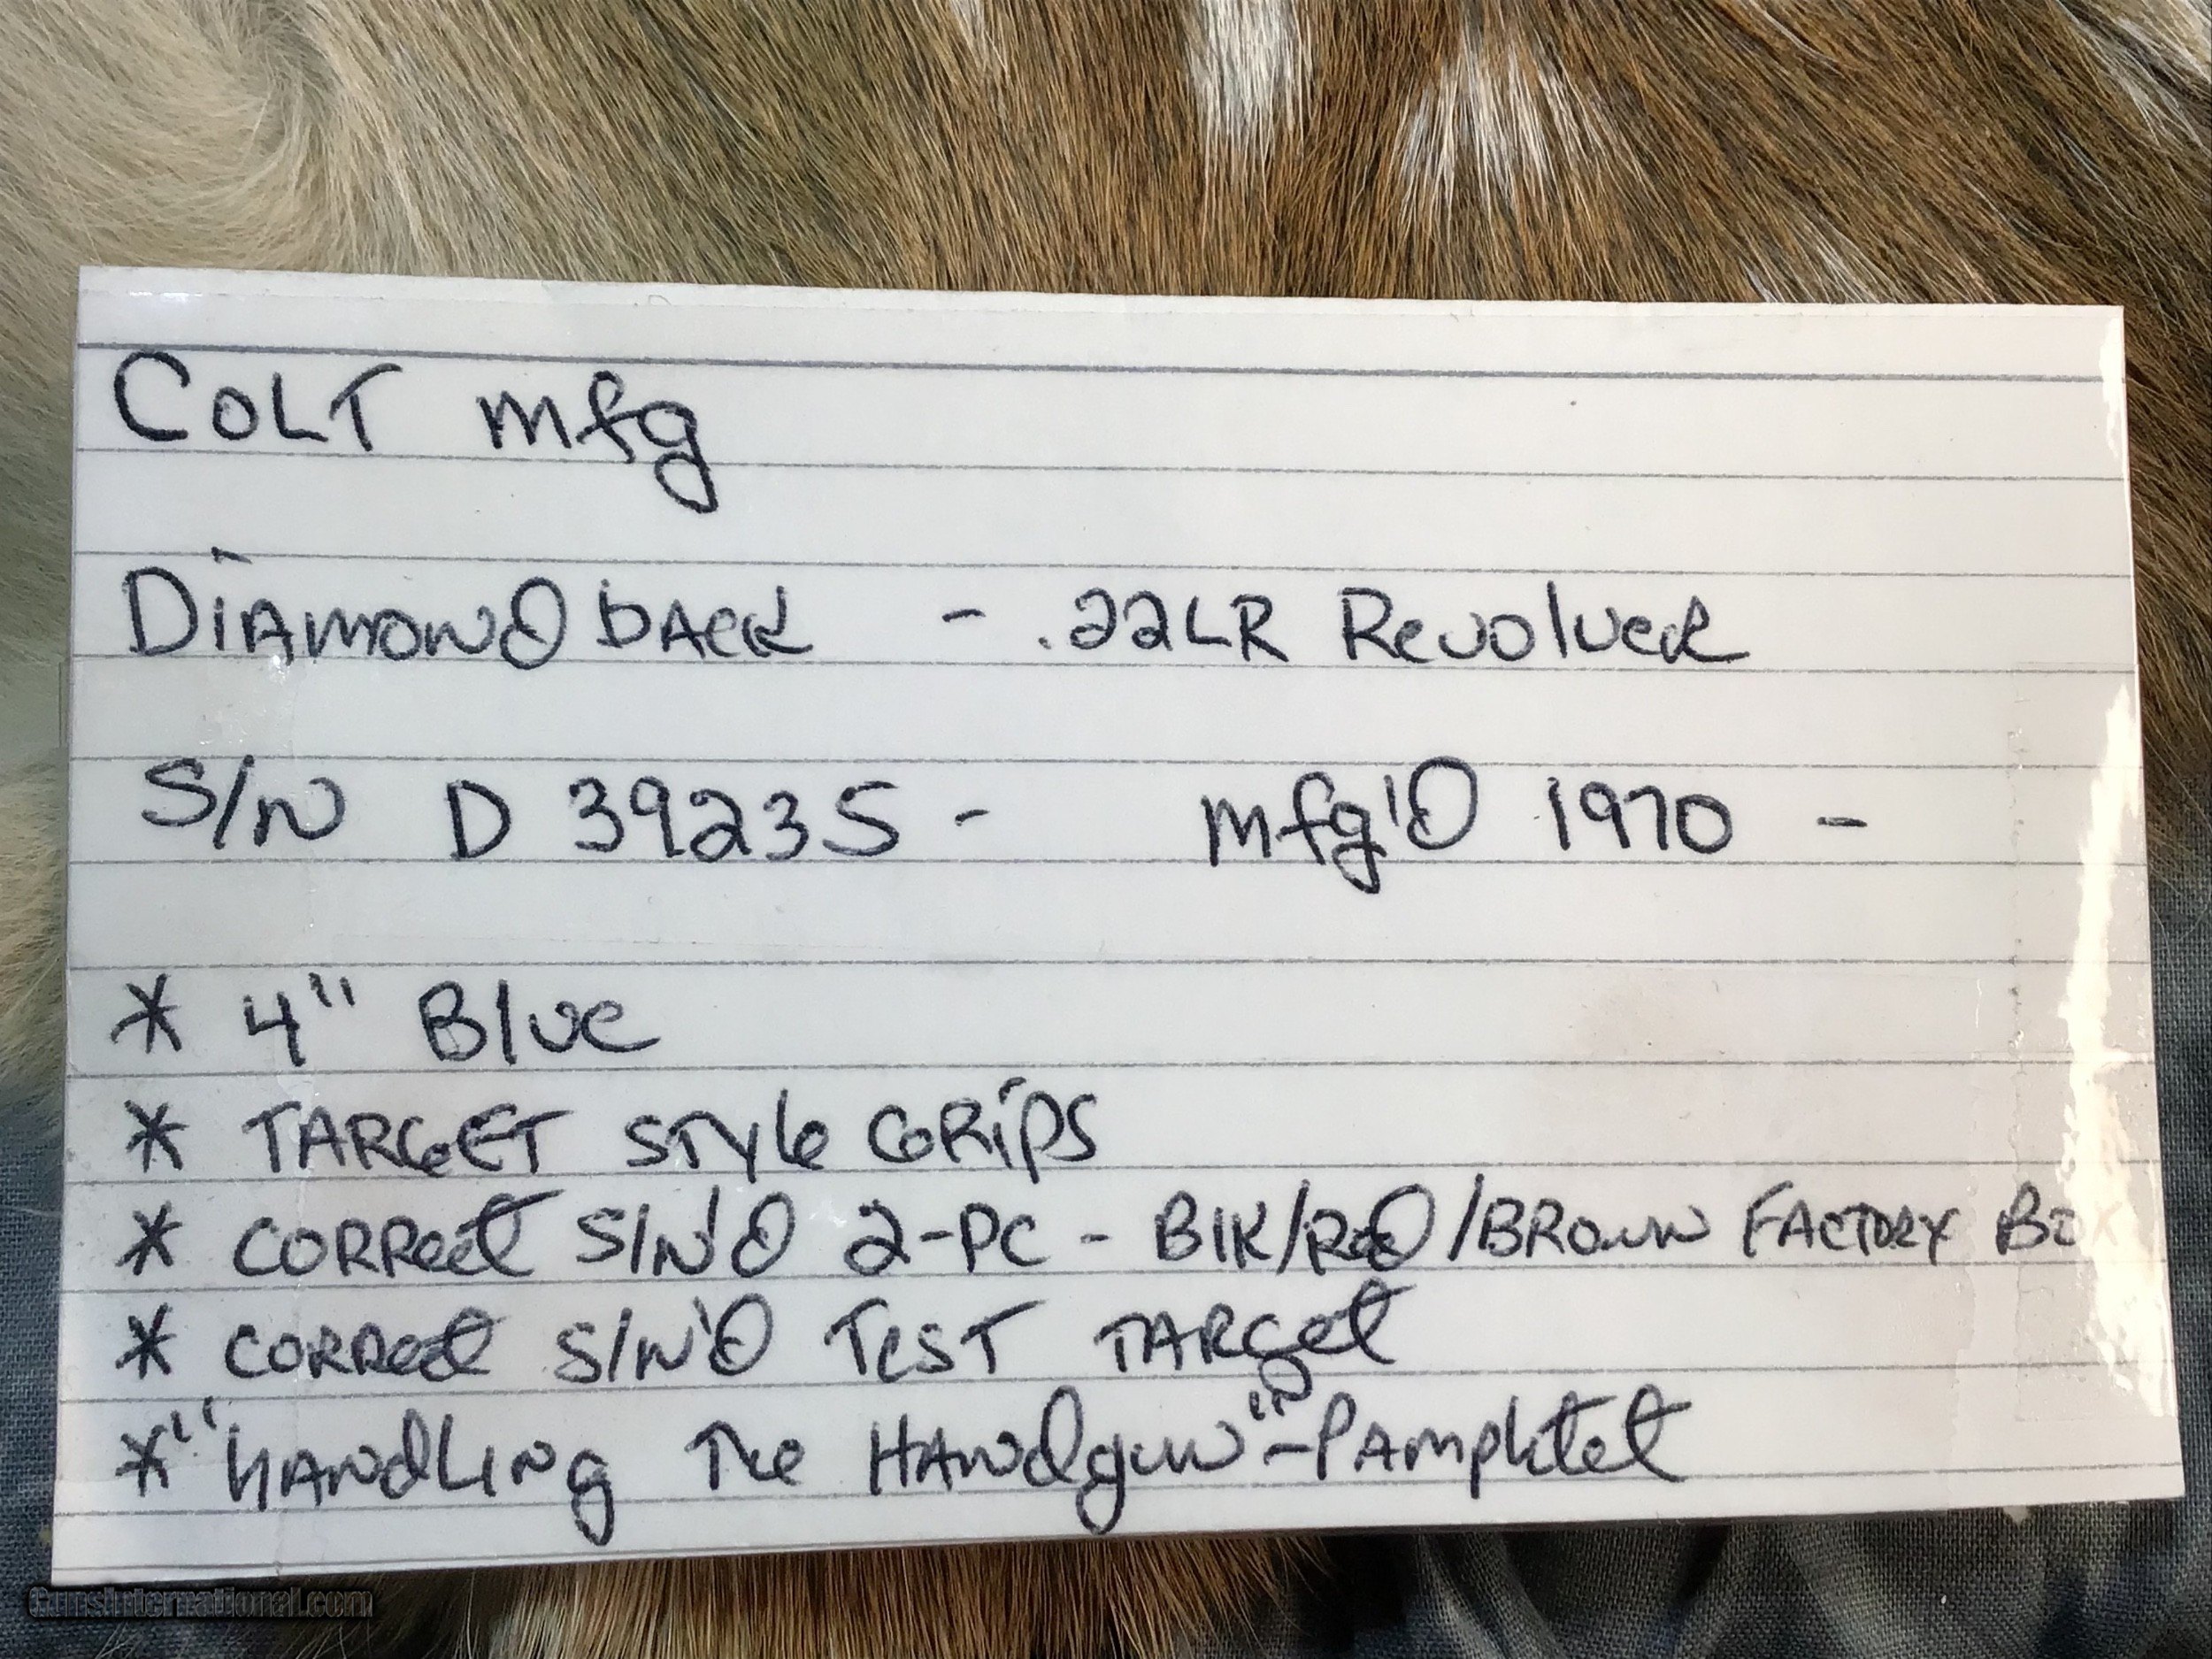 COLT mfg
DIAMOND bACK - .22LR Revolver
S/N D 39235 - mfg'D 1970 -
* 4" Blue
* TARGET STYle GRiPS
* CORRect S/N'D 2-PC - BlK/ReD/BROWN FACTORY BOX
* CORRect S/N'D TeST TARget
* "HANdLING The HANdguN" - PAmphlet
GunsInternational.com